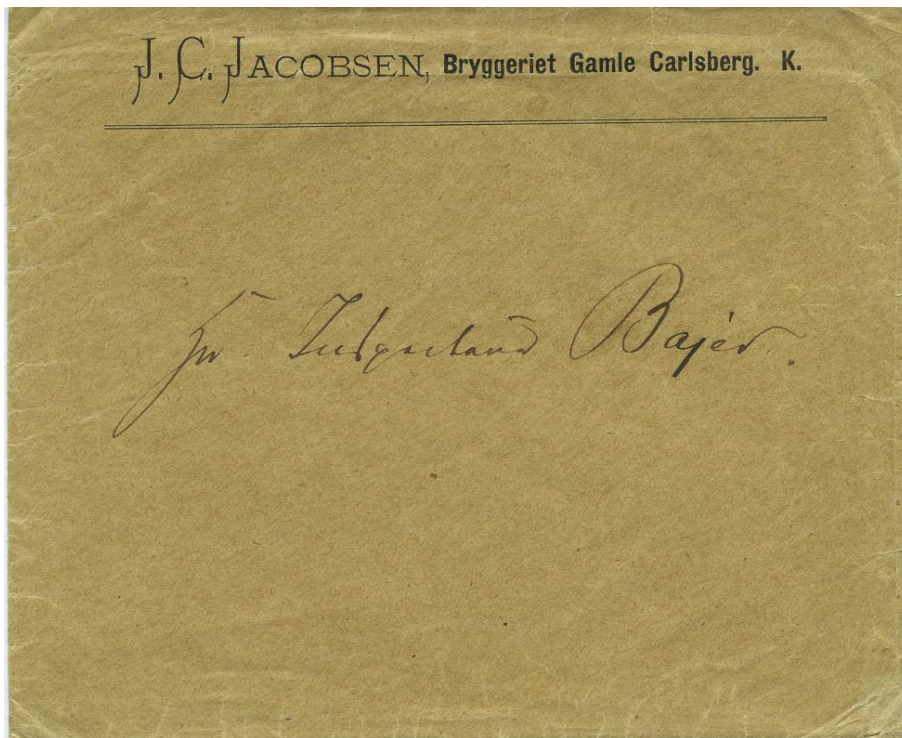 J. C. JACOBSEN, Bryggeriet Gamle Carlsberg. K.
Hr. Inspecteur Bajer.